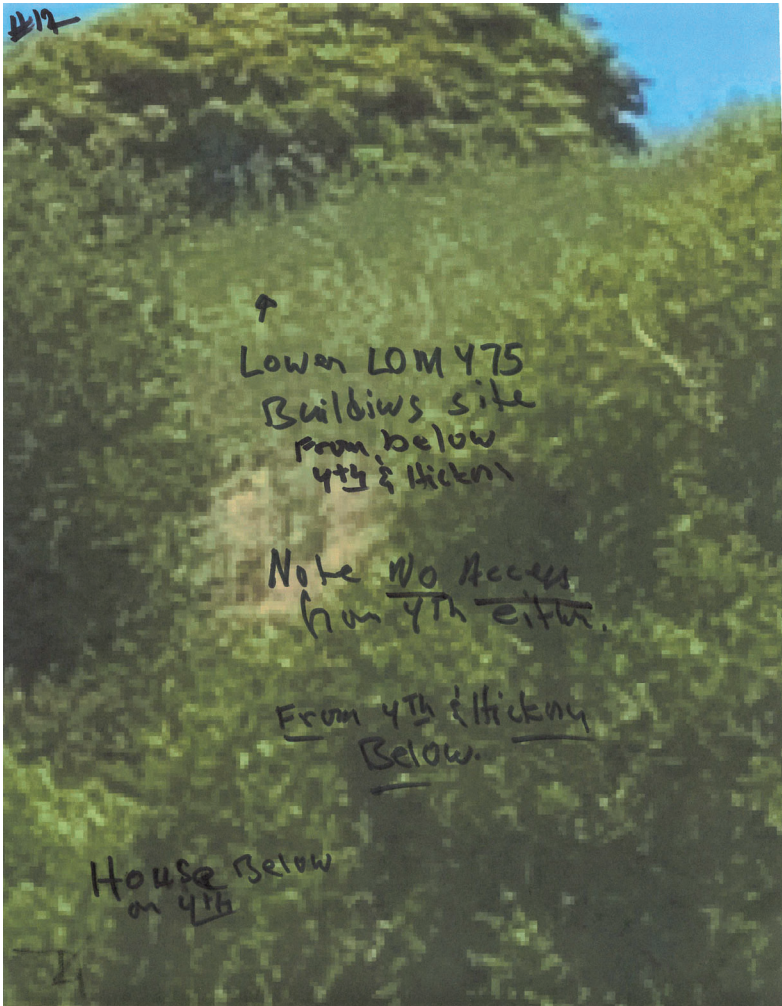 #12
Lower LOM 475
Building site
From below
4th & Hickory
Note No Access
from 4th either.
From 4th & Hickory
Below.
House Below
on 4th